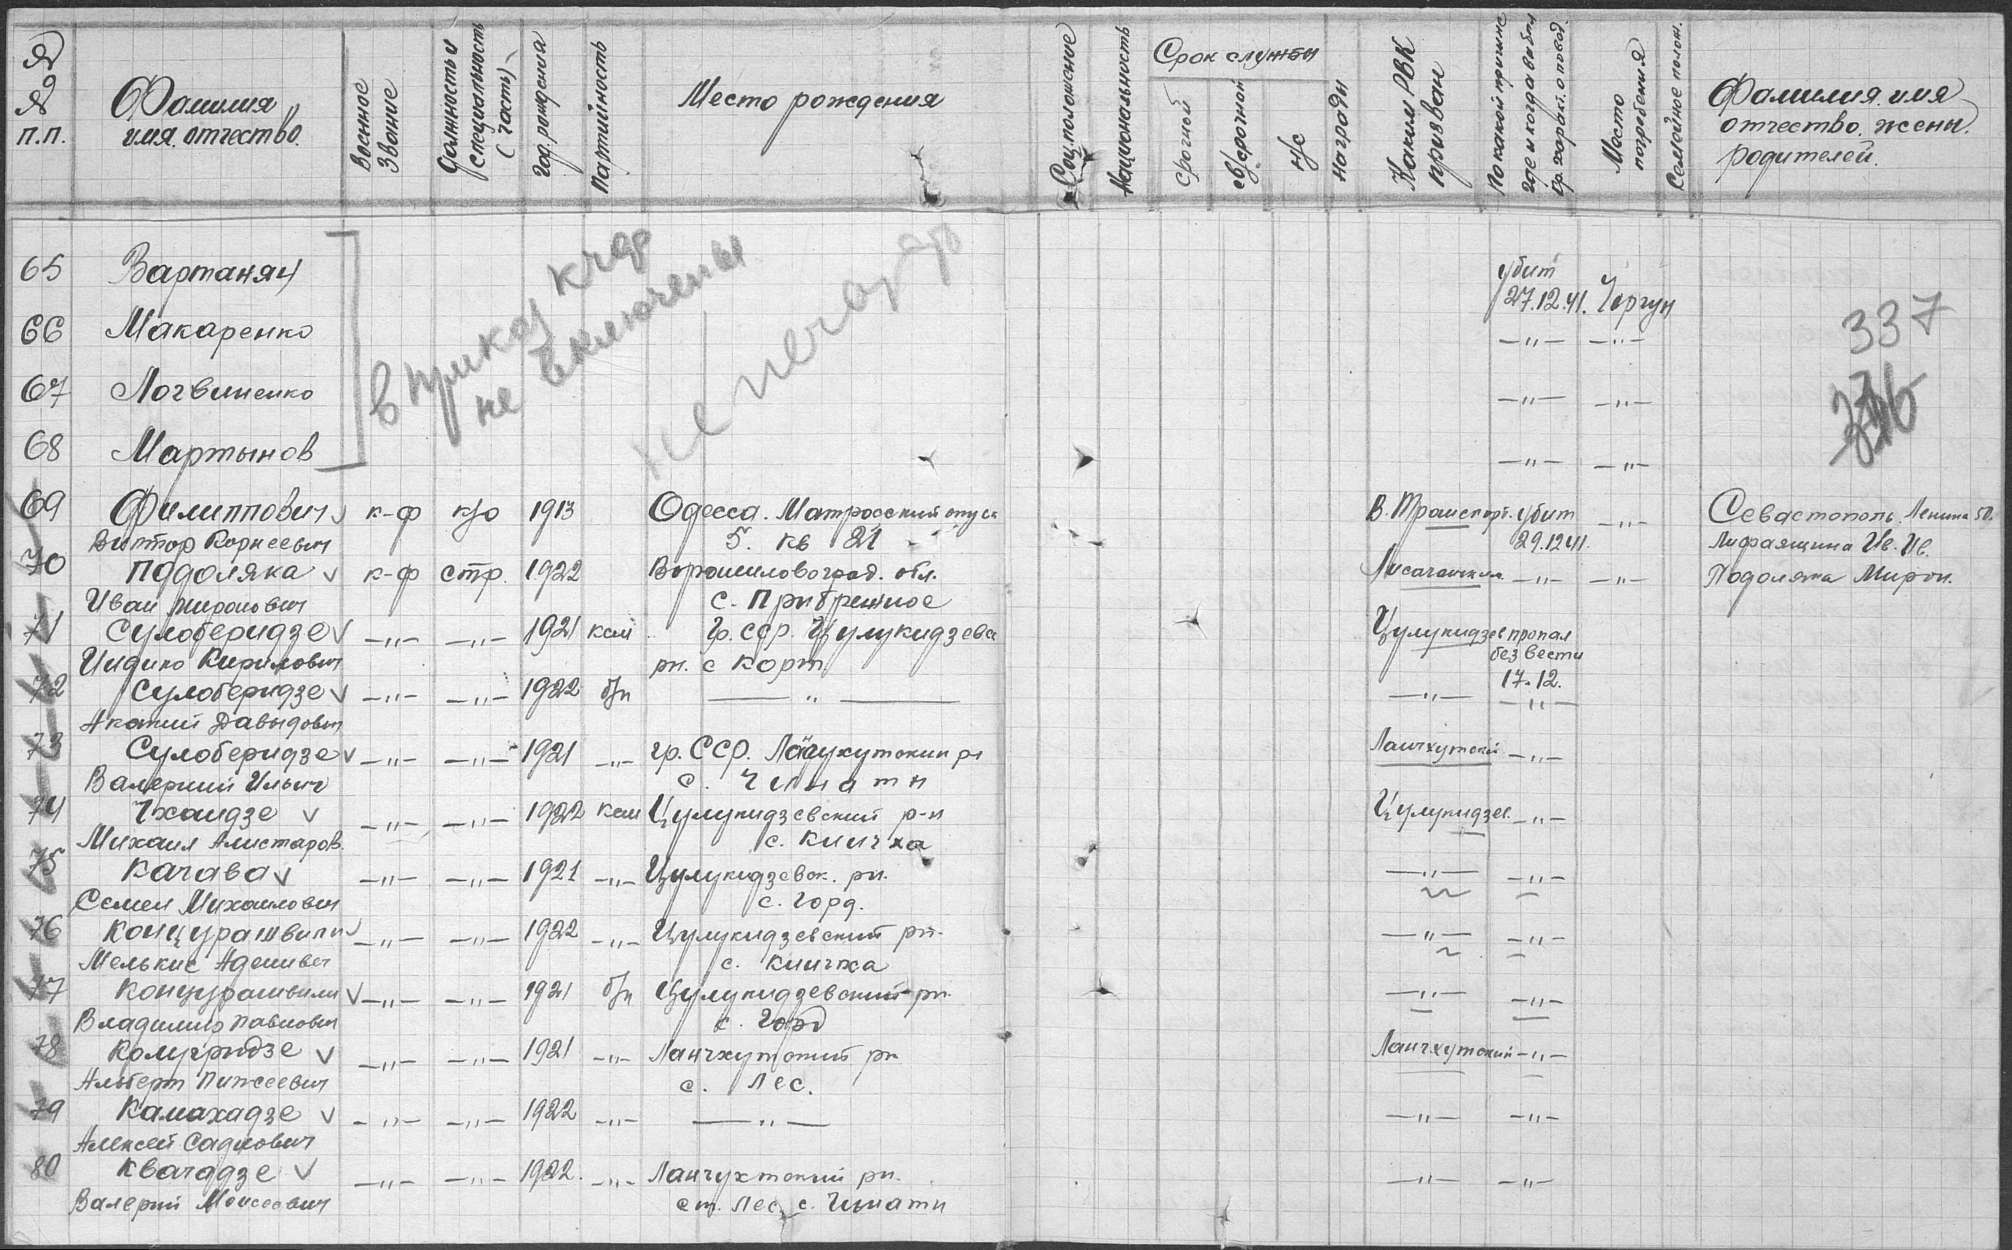 №№ п.п.
Фамилия имя. отчество.
Военное Звание
Должность и специальность (часть)
Год рождения
Партийность
Место рождения
Соц. положение
Национальность
Срок службы
срочной
св/срочной
н/с
награды
Каким РВК призван
По какой причине где и когда выбыл
Место погребения
Семейное полож.
Фамилия. имя отчество. жены. родителей.
в приказ КЧФ
не включены
не печатать
337
65 Вартанян убит 27.12.41. Чоргун
66 Макаренко —"— —"—
67 Логвиненко —"— —"—
68 Мартынов —"— —"—
69 Филиппович к-ф к/о 1913 Одесса. Матросский спуск В. Транспорт. убит —"— Севастополь, Ленина 50.
Виктор Корнеевич 5. кв 21 29.12.41. Ив. Ив.
70 Подоляка к-ф стр. 1922 Ворошиловоград. обл. —"— —"— Подоляка Мирон.
Иван Миронович с. Прибрежное
71 Сулоберидзе —"— —"— 1921 ксм Гр. ССР. Цулукидзевс Цулукидзев пропал
Кирилович рн. с Корт без вести
17.12.
72 Сулоберидзе —"— —"— 1922 б/п —"— —"— —"—
Акакий Давыдович
73 Сулоберидзе —"— —"— 1921 —"— гр. ССР. рн Ланчхутский —"—
Валериий Ильич с. Чинати
74 Чхаидзе —"— —"— 1922 ксм Цулукидзевский р-н Цулукидзев. —"—
Михаил Алистаров. с. Кинчха
75 Качава —"— —"— 1921 —"— Цулукидзевск. рн. —"— —"—
Семен Михаилович с. Горд.
76 Концурашвили —"— —"— 1922 —"— Цулукидзевский рн. —"— —"—
Мелькис с. Кинчха
77 Концурашвили —"— —"— 1921 б/п Цулукидзевский рн. —"— —"—
Владимир Павлович с. Горд
78 —"— —"— 1921 —"— Ланчхутский рн Ланчхутский —"—
Альберт с. Лес.
79 Камахадзе —"— —"— 1922 —"— —"— —"— —"—
Алексей
80 Квачадзе —"— —"— 1922. —"— Ланчухтский рн. —"— —"—
Валерий Моисеевич ст. Лес, с. Чинати